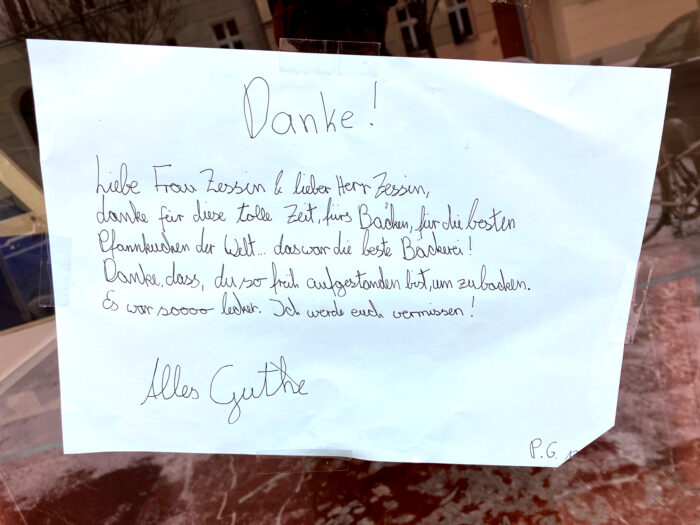 Danke!
Liebe Frau Zessin & lieber Herr Zessin,
danke für diese tolle Zeit, fürs Backen, für die besten
Pfannkuchen der Welt... das war die beste Bäckerei!
Danke, dass, du so früh aufgestanden bist, um zu backen.
Es war soooo lecker. Ich werde euch vermissen!
Alles Guthe
P.G.